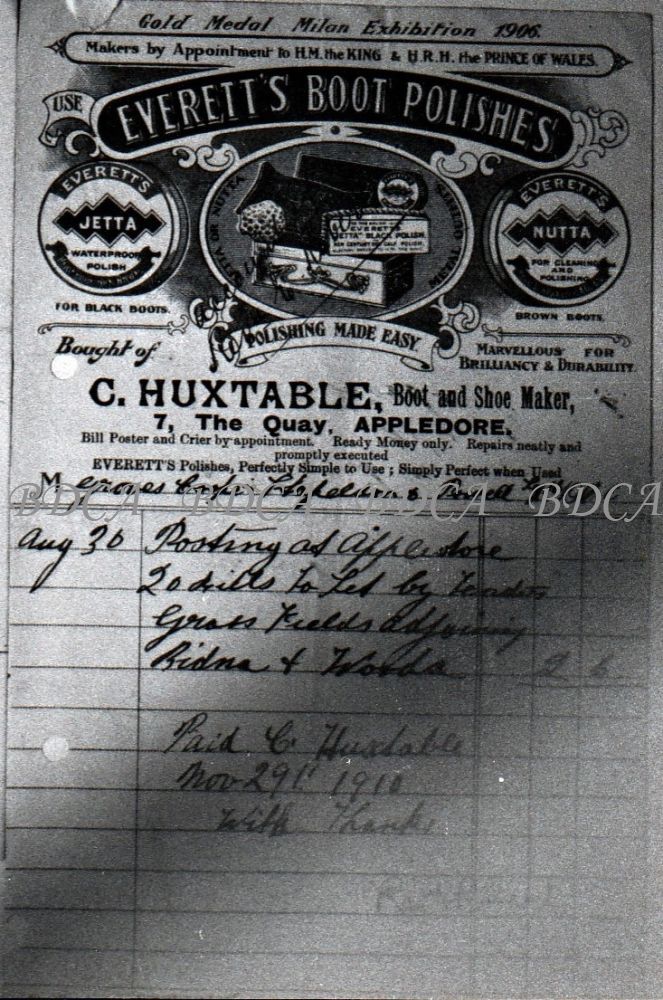 Gold Medal Milan Exhibition 1906.
Makers by Appointment to H.M. the KING & H.R.H. the PRINCE OF WALES.
USE
EVERETT'S BOOT POLISHES
EVERETT'S
JETTA
WATERPROOF
POLISH
FOR BLACK BOOTS.
JETTA OR NUTTA
EVERETT'S
"JETTA" BLACK POLISH.
POLISHING MADE EASY
EVERETT'S
NUTTA
FOR CLEANING
AND
POLISHING
BROWN BOOTS.
Bought of
MARVELLOUS FOR
BRILLIANCY & DURABILITY.
C. HUXTABLE, Boot and Shoe Maker,
7, The Quay, APPLEDORE.
Bill Poster and Crier by appointment. Ready Money only. Repairs neatly and
promptly executed
EVERETT'S Polishes, Perfectly Simple to Use; Simply Perfect when Used
M
BDCA BDCA BDCA BDCA
Aug 30 Posting at Appledore
20 bills to Let by
Grass Fields adjoining
Ridna & Wooda 2 6
Paid C Huxtable
Nov 29th 1910
With Thanks